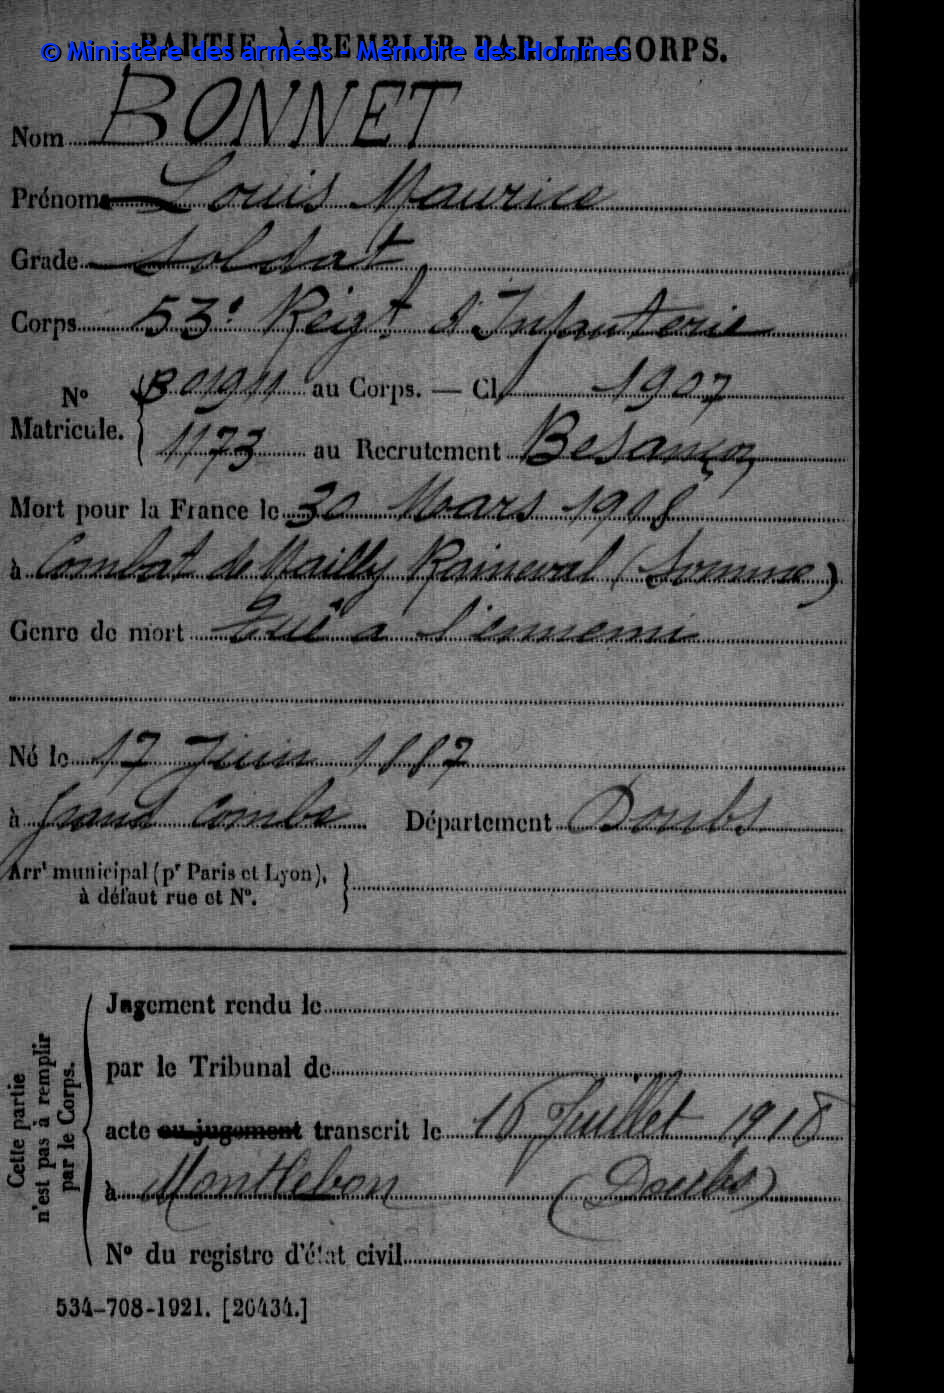 PARTIE À REMPLIR PAR LE CORPS.
© Ministère des armées - Mémoire des Hommes
Nom BONNET
Prénoms Louis Maurice
Grade Soldat
Corps 53e Régt d'Infanterie
No Matricule. B 01911 au Corps. — Cl. 1907
1173 au Recrutement Besançon
Mort pour la France le 30 Mars 1918
à Combat de Mailly Raineval (Somme)
Genre de mort Tué à l'ennemi
Né le 17 Juin 1887
à Grand Combe Département Doubs
Arrt municipal (pr Paris et Lyon),
à défaut rue et No.
Cette partie
n'est pas à remplir
par le Corps.
Jugement rendu le
par le Tribunal de
acte ou jugement transcrit le 16 Juillet 1918
à Montlebon (Doubs)
No du registre d'état civil
534-708-1921. [26434.]